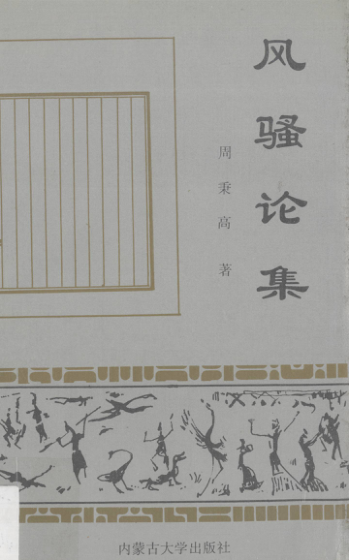 风骚论集
周秉高 著
内蒙古大学出版社